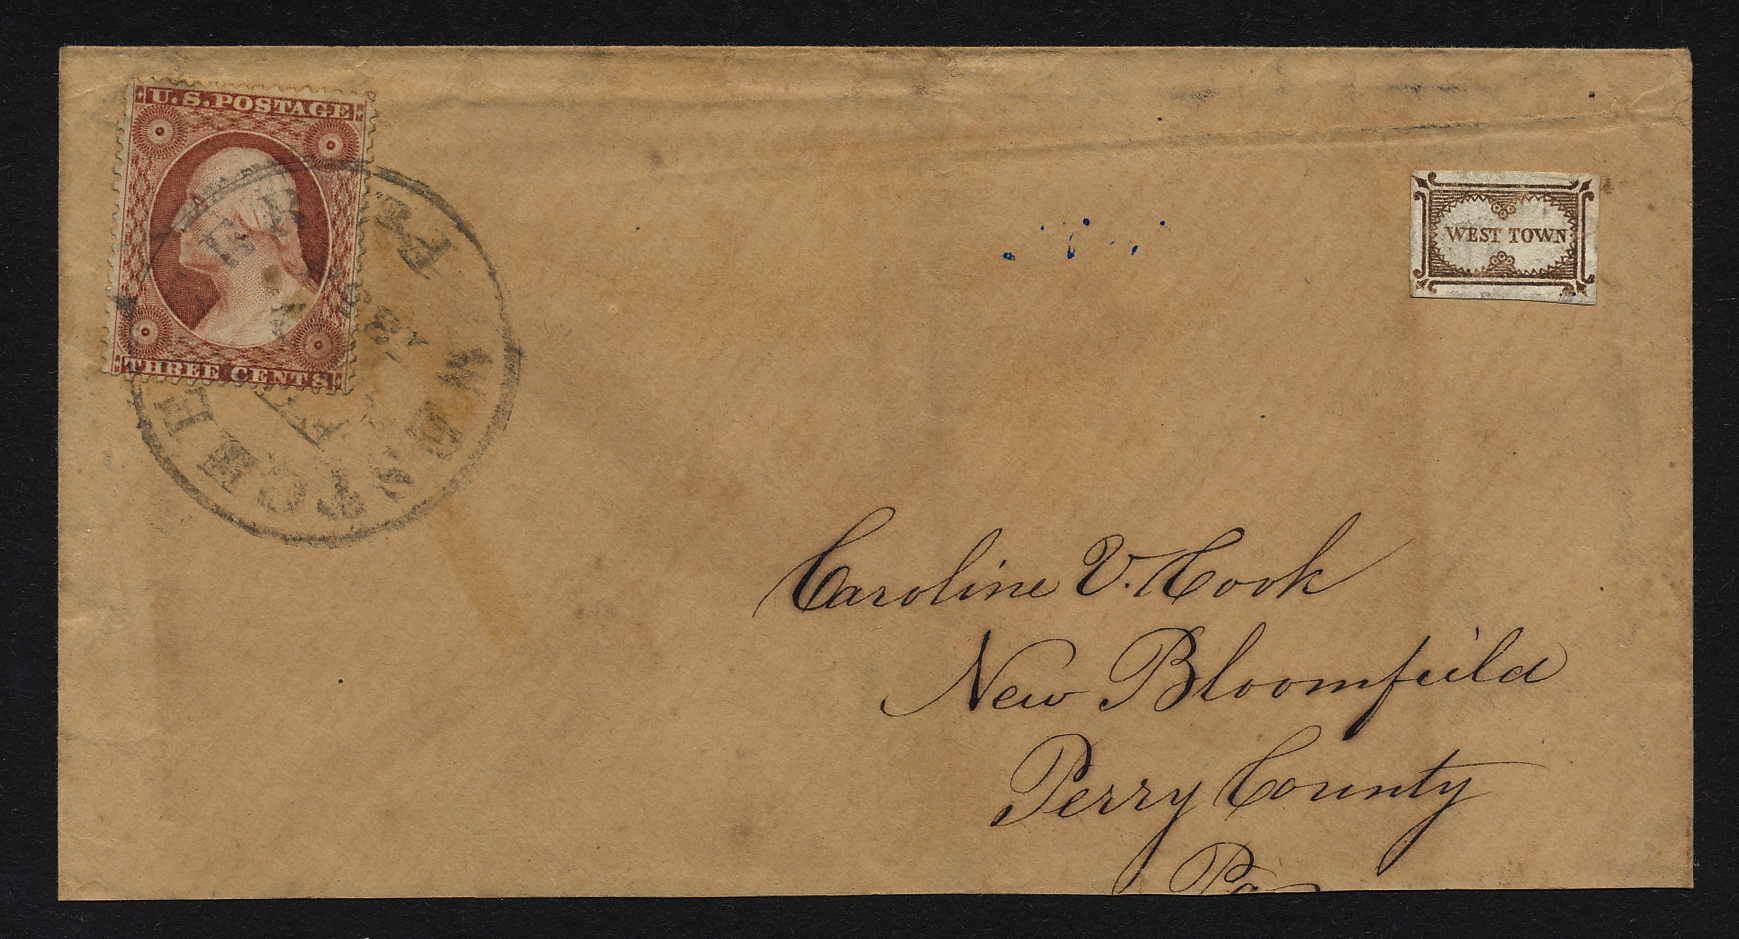 U.S. POSTAGE
THREE CENTS
WEST CHESTER Pa
WEST TOWN
Caroline V. Cook
New Bloomfield
Perry County
Pa